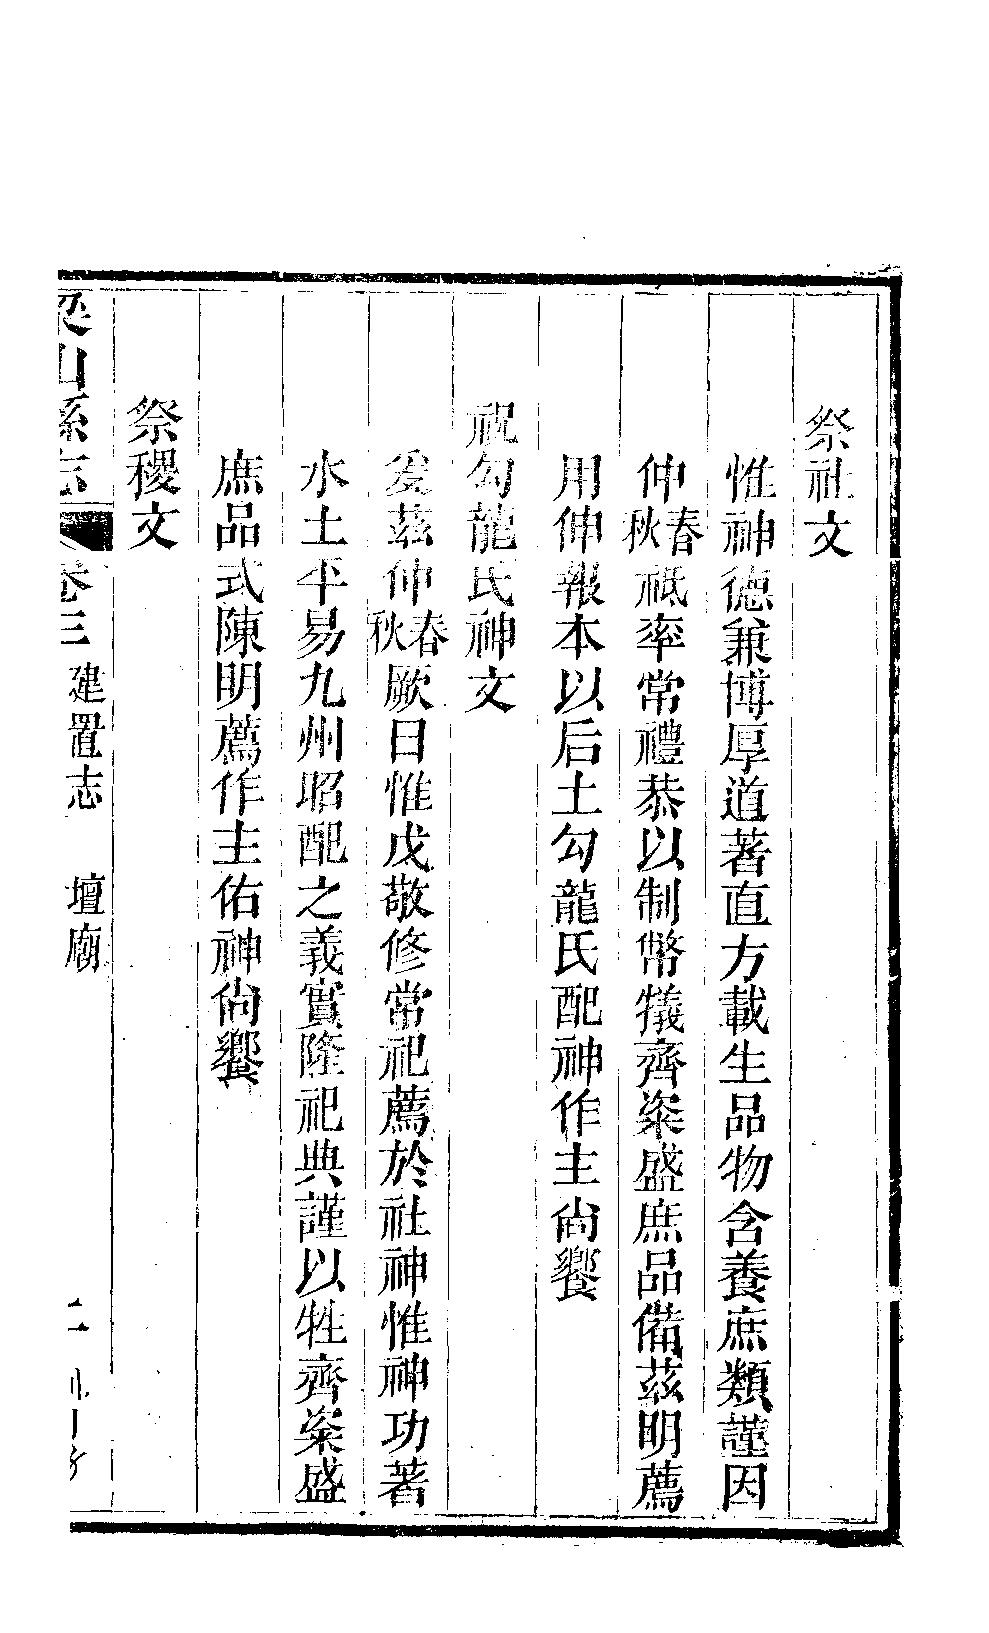 祭社文
惟神德兼博厚道著直方載生品物含養庶類謹因
仲春秋祗率常禮恭以制幣犧齊粢盛庶品備茲明薦
用伸報本以后土勾龍氏配神作主尙饗
祝勾龍氏神文
爰茲仲春秋厥日惟戊敬修常祀薦於社神惟神功著
水土平易九州昭配之義實隆祀典謹以牲齊粢盛
庶品式陳明薦作主佑神尙饗
祭稷文
梁山縣志 卷三 建置志 壇廟 二